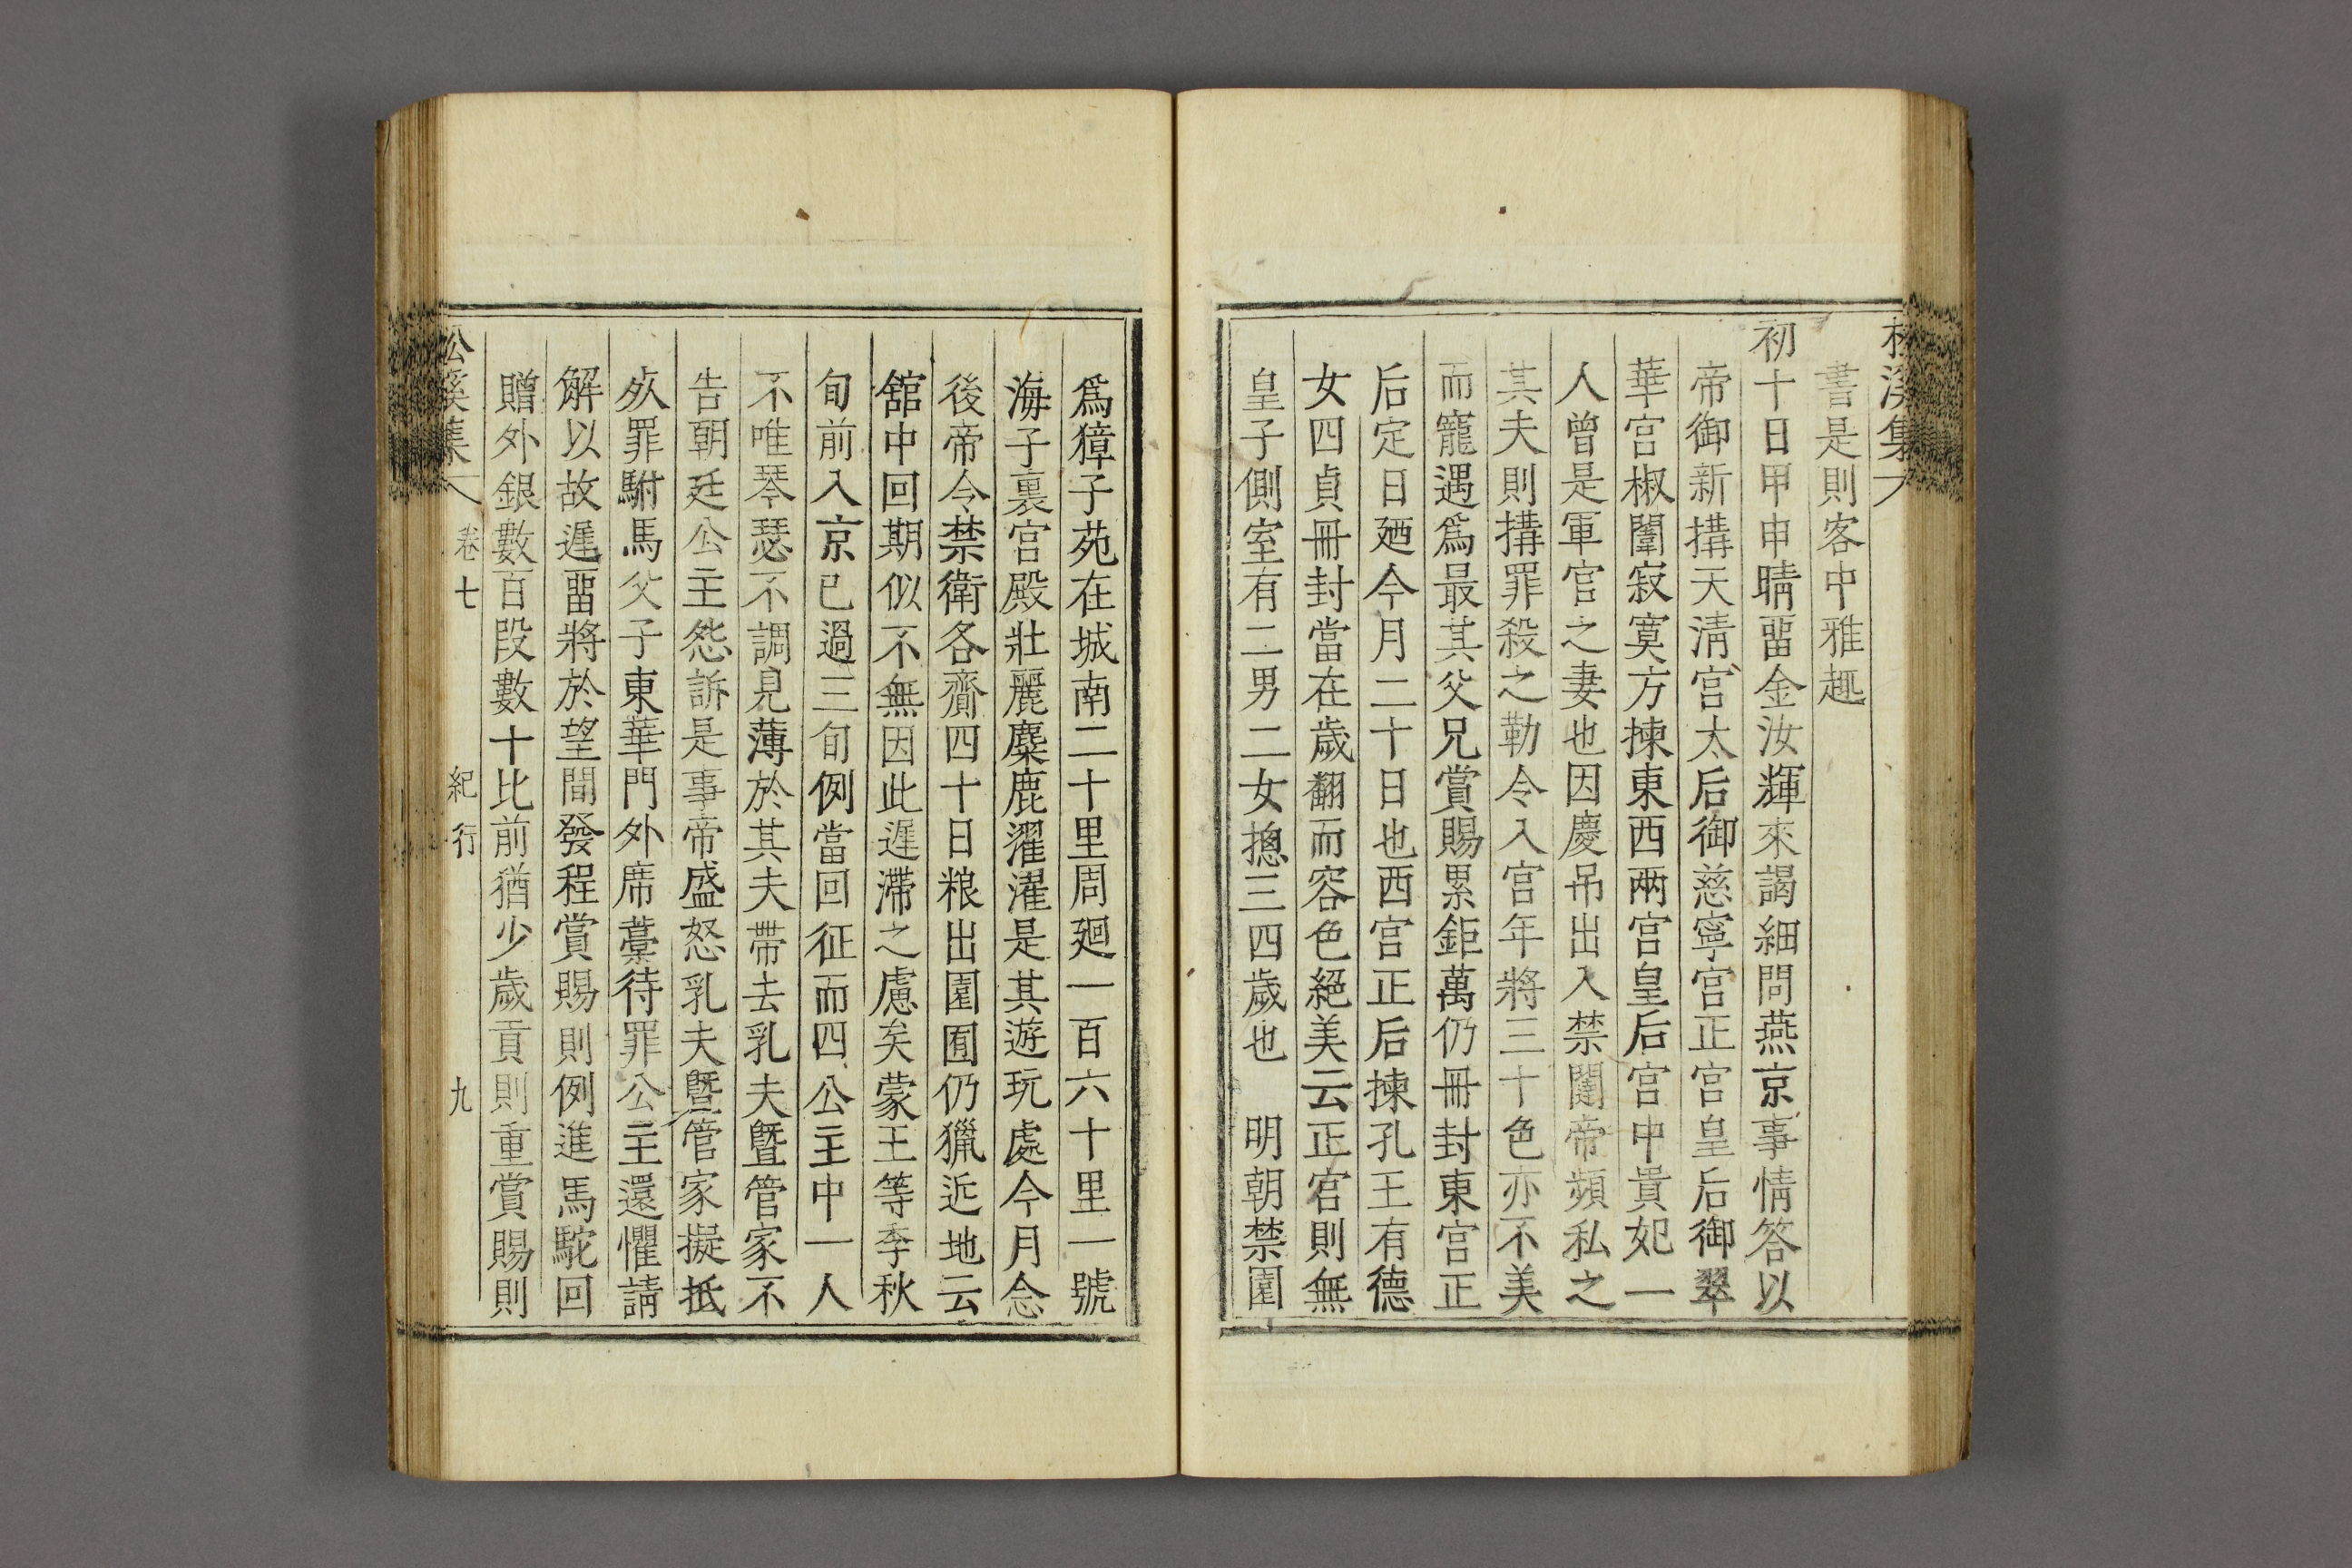 書是則客中雅趣
初十日甲申晴畱金汝輝來謁細問燕京事情答以
帝御新搆天淸宮太后御慈寧宮正宮皇后御翠
華宮椒闈寂寞方揀東西兩宮皇后宮中貴妃一
人曾是軍官之妻也因慶吊出入禁闥帝頻私之
其夫則搆罪殺之勒令入宮年將三十色亦不美
而寵遇爲最其父兄賞賜累鉅萬仍冊封東宮正
后定日廼今月二十日也西宮正后揀孔王有德
女四貞冊封當在歲翻而容色絕美云正宮則無
皇子側室有二男二女摠三四歲也　明朝禁園
爲獐子苑在城南二十里周廻一百六十里一號
海子裏宮殿壯麗麋鹿濯濯是其遊玩處今月念
後帝令禁衛各齎四十日粮出園囿仍獵近地云
舘中回期似不無因此遲滯之慮矣蒙王等季秋
旬前入京已過三旬例當回征而四公主中一人
不唯琴瑟不調見薄於其夫帶去乳夫曁管家不
告朝廷公主怨訴是事帝盛怒乳夫曁管家擬抵
死罪駙馬父子東華門外席藁待罪公主還懼請
解以故遲畱將於望間發程賞賜則例進馬駝回
贈外銀數百段數十比前猶少歲貢則重賞賜則
松溪集 卷七 紀行 九